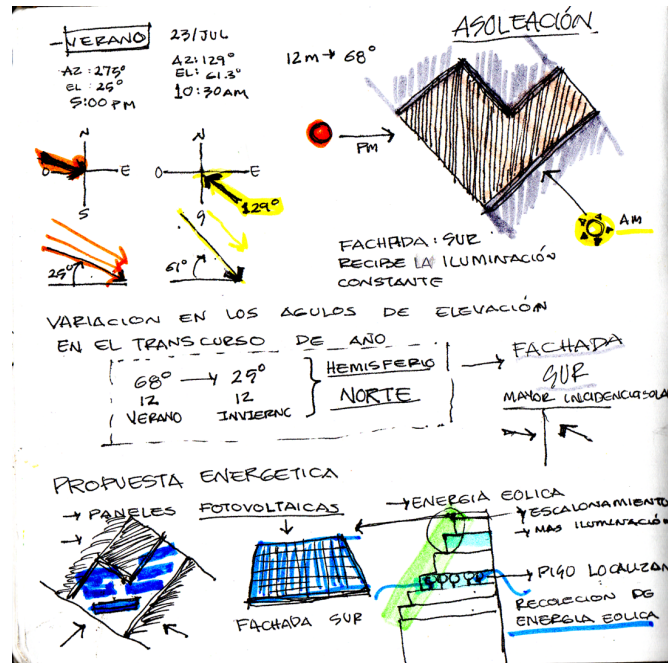 ASOLEACIÓN
- VERANO 23/JUL
AZ: 275° AZ: 129° 12m → 68°
EL: 25° EL: 61.3°
5:00 PM 10:30AM
N N
O E O E
S S
129°
25° 61°
PM
AM
FACHADA: SUR
RECIBE LA ILUMINACIÓN
CONSTANTE
VARIACION EN LOS AGULOS DE ELEVACIÓN
EN EL TRANSCURSO DE AÑO
68° → 25°
12 12
VERANO INVIERNO
HEMISFERIO
NORTE
→ FACHADA
SUR
MAYOR INCIDENCIA SOLA
PROPUESTA ENERGETICA
→ PANELES FOTOVOLTAICAS
FACHADA SUR
→ ENERGIA EOLICA
→ ESCALONAMIENTO
→ MAS ILUMINACIÓN
→ PISO LOCALIZAN
RECOLECION DE
ENERGIA EOLICA